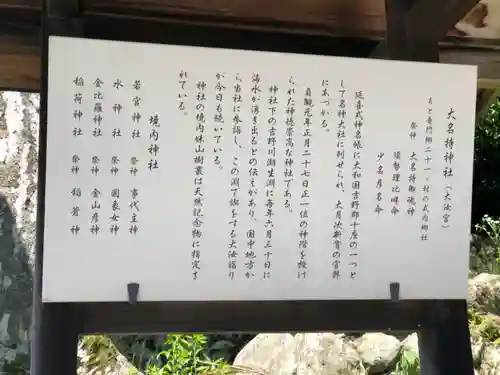 大名持神社（大汝宮）
もと竜門郷二十一ヶ村の式内郷社
祭神　大名持御魂神
須勢理比咩命
少名彦名命
延喜式神名帳に大和国吉野郡十座の一つと
して名神大社に列せられ、大月次新嘗の官幣
にあづかる。
貞観元年正月二十七日正一位の神階を授け
られた神徳崇高な神社である。
神社下の吉野川潮生淵に毎年六月三十日に
潮水が湧き出るとの伝えがあり、国中地方か
ら当社に参詣し、この淵で禊をする大汝詣り
が今日も続いている。
神社の境内妹山樹叢は天然記念物に指定さ
れている。
境内神社
若宮神社　祭神　事代主神
水神社　祭神　罔象女神
金比羅神社　祭神　金山彦神
稲荷神社　祭神　稲蒼神